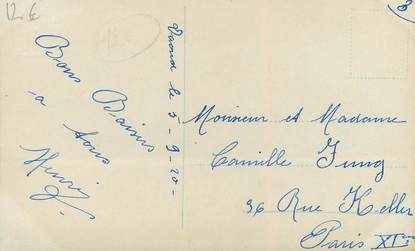 12 €
Bons Baisers
à tous
Henri
le 5-9-20-
Monsieur et Madame
Camille Jung
36 Rue Keller
Paris XIe